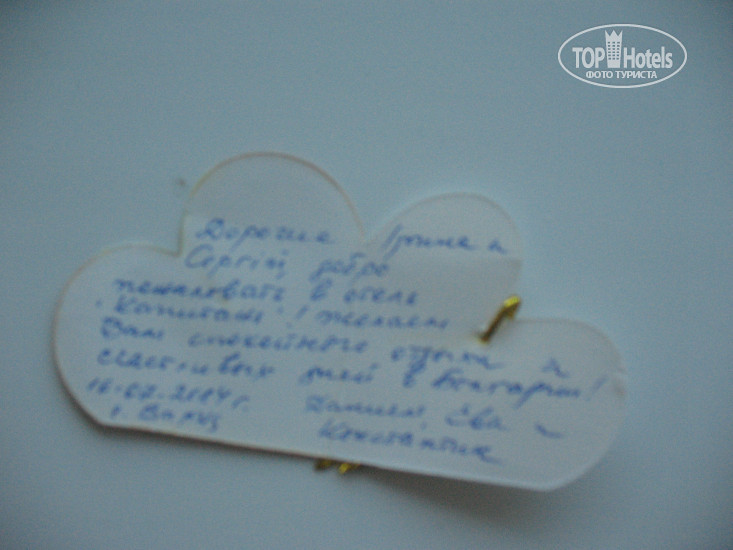 TOP Hotels
ФОТО ТУРИСТА
Дорогие Ірина и
Сергій, добро
пожаловать в отель
"Капитан"! Желаем
Вам спокойного отдыха и
счастливых дней в Болгарии!
16.07.2004г. Даниел, Ева
Константин